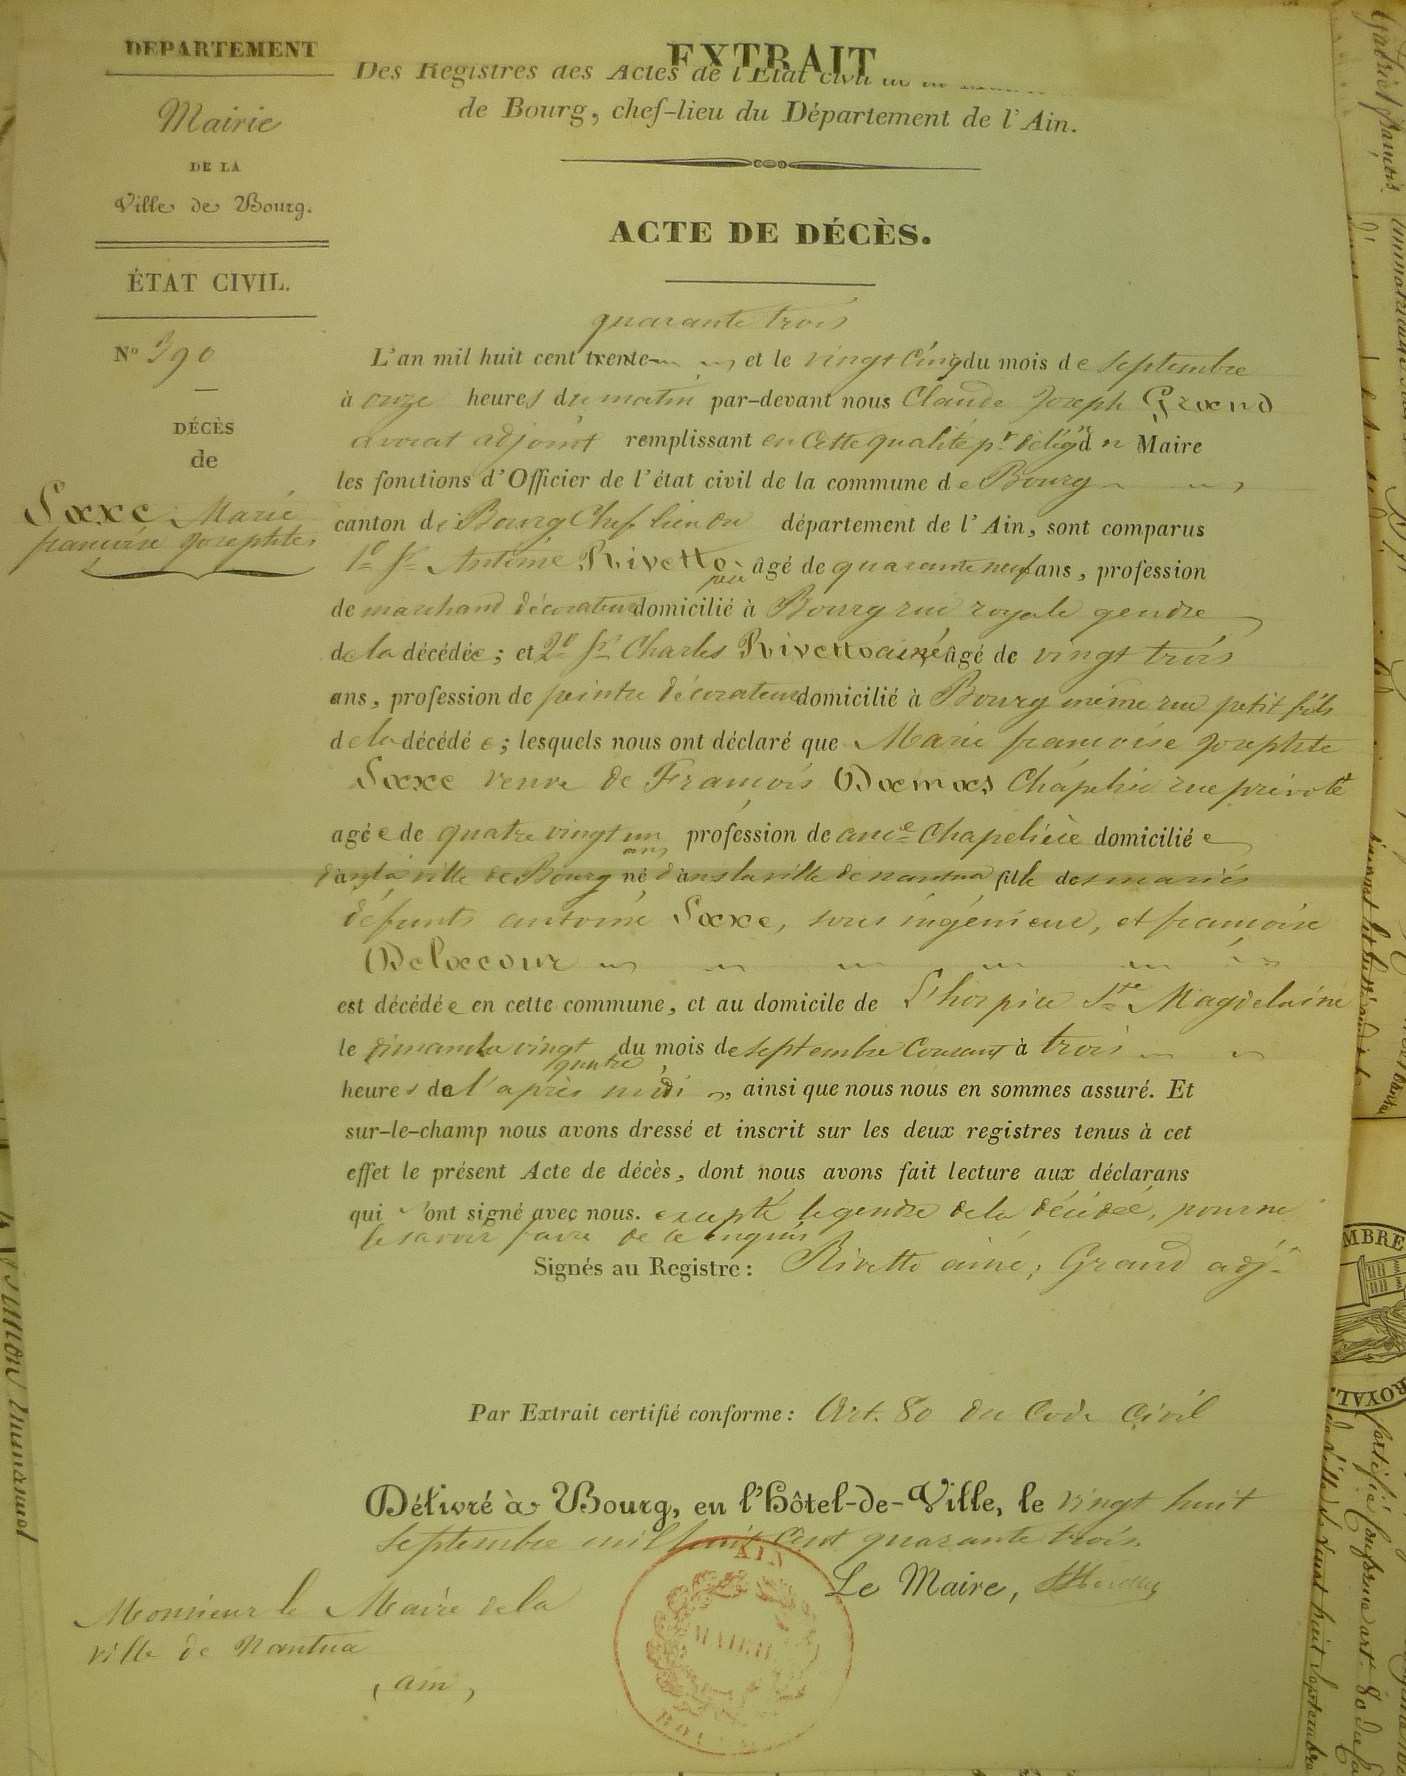 DEPARTEMENT
Mairie
DE LA
Ville de Bourg.
ÉTAT CIVIL.
N° 390
DÉCÈS
de
Saxe Marie
francoise Josephte
EXTRAIT
Des Registres des Actes de l'Etat civil
de Bourg, chef-lieu du Département de l'Ain.
ACTE DE DÉCÈS.
quarante trois
L'an mil huit cent trente et le vingt cinq du mois de septembre
à onze heures du matin par-devant nous Claude Joseph Grand
avocat adjoint remplissant en cette qualité pr. délégon du Maire
les fonctions d'Officier de l'état civil de la commune de Bourg
canton de Bourg Chef lieu du département de l'Ain, sont comparus
1° Sr Antoine Rivetto père âgé de quarante neuf ans, profession
de marchand décorateur domicilié à Bourg rue royale gendre
de la décédée; et 2° Sr Charles Rivetto ainé âgé de vingt trois
ans, profession de peintre décorateur domicilié à Bourg même rue petit fils
de la décédée; lesquels nous ont déclaré que Marie francoise Josephte
Saxe veuve de Francois Damas Chapelier rue prévoté
agée de quatre vingt un ans profession de ance Chapelière domiciliée
dans la ville de Bourg né dans la ville de nantua fille des mariés
défunts antoine Saxe, sous ingénieur, et francoise
Delacour
est décédée en cette commune, et au domicile de L'hospice Ste Magdelaine
le dimanche vingt quatre du mois de septembre Courant à trois
heures de l'après midi, ainsi que nous nous en sommes assuré. Et
sur-le-champ nous avons dressé et inscrit sur les deux registres tenus à cet
effet le présent Acte de décès, dont nous avons fait lecture aux déclarans
qui ont signé avec nous. excepté le gendre de la décédée, pour ne
le savoir faire de ce enquis
Signés au Registre: Rivetto ainé; Grand adjt
Par Extrait certifié conforme: Art. 80 du Code Civil
Délivré à Bourg, en l'Hôtel-de-Ville, le vingt huit
septembre mil huit Cent quarante trois
Le Maire,
AIN
MAIRIE
Monsieur le Maire de la
ville de Nantua
(ain)
MBRE
ROYAL.